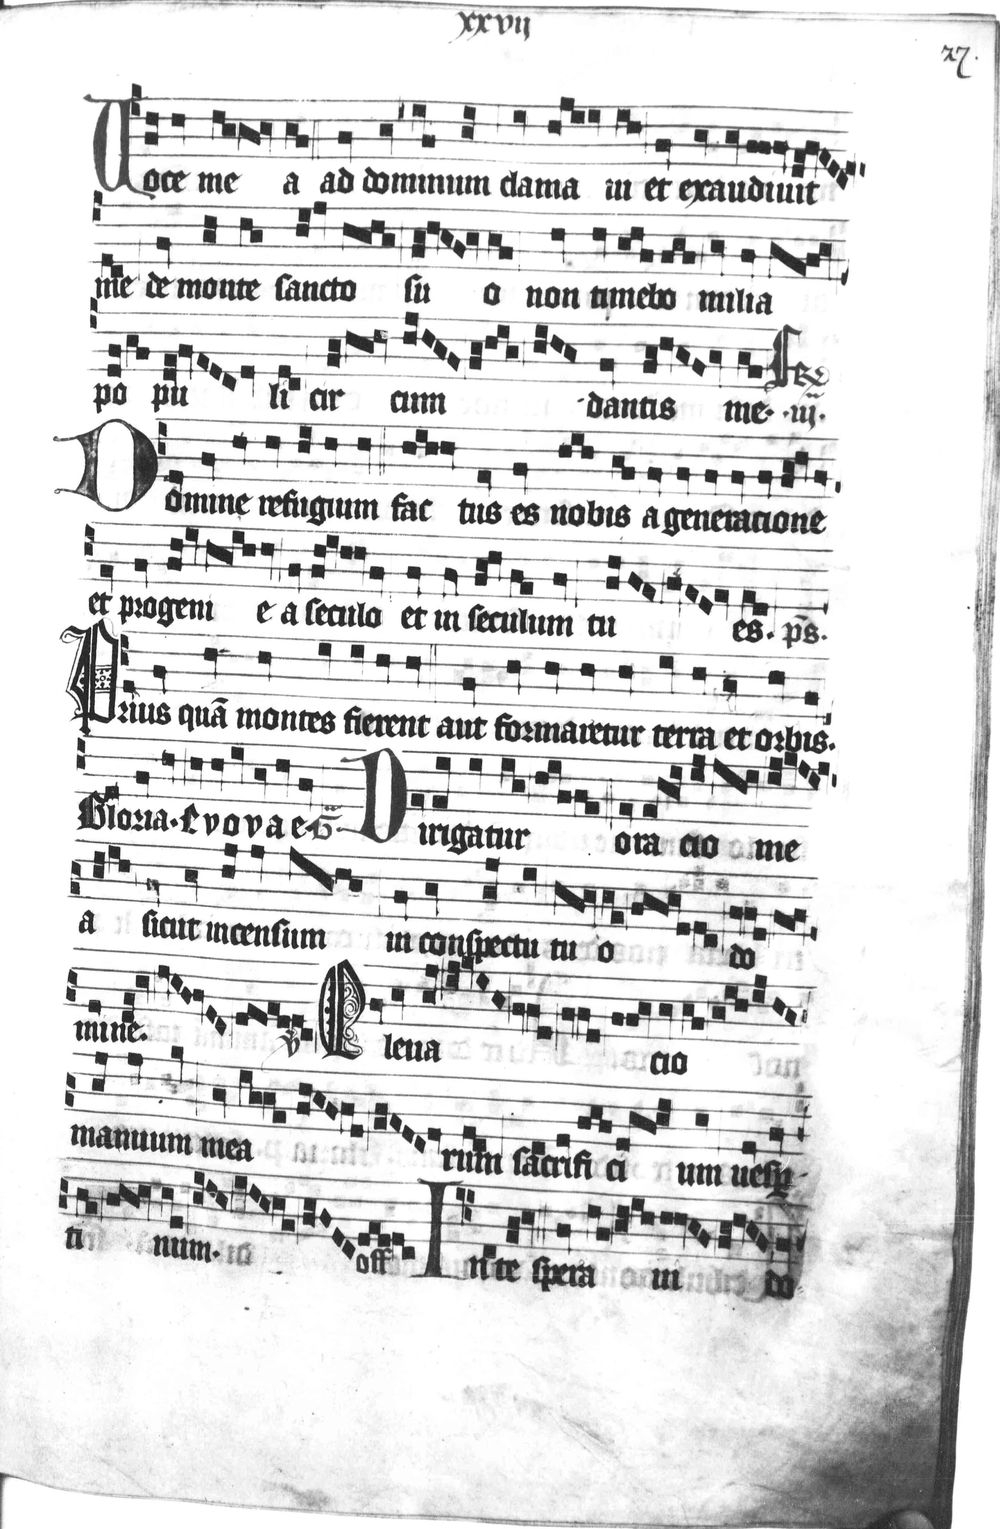 xxvij
27.
Voce me a ad dominum clama ui et exaudiuit
me de monte sancto su o non timebo milia
po pu li cir cum dantis me. .iij. fer
Domine refugium fac tus es nobis a generacione
et progeni e a seculo et in seculum tu es. p̄s.
Prius quā montes fierent aut formaretur terra et orbis.
Gloria. Evovae. G̃ Dirigatur ora cio me
a sicut incensum in conspectu tu o do
mine. v̄ Eleua cio
manuum mea rum sacrifi ci um uesp
ti num. off In te spera ui do